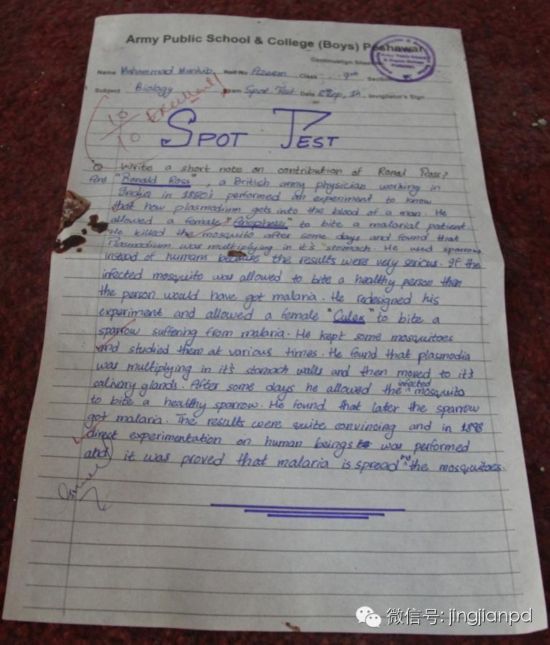 Army Public School & College (Boys) Peshawar
Continuation Sheet
Name Muhammad Roll No Class 9th
Subject Biology Exam Spot Test Date Invigilator's Sign
10
10
Excellent!
SPOT TEST
Q Write a short note on contribution of Ronal Ross?
Ans "Ronald Ross", a British army physician working in
India in 1880's performed an experiment to know
that how plasmodium gets into the blood of a man. He
allowed a female "Anopheles" to bite a malarial patient.
He killed the mosquito after some days and found that
Plasmodium was multiplying in it's stomach. He used sparrow
insead of humans because the results were very serious. If the
infected mosquito was allowed to bite a healthy person then
the person would have got malaria. He redesigned his
experiment and allowed a female "Culex" to bite a
sparrow suffering from malaria. He kept some mosquitoes
and studied them at various times. He found that plasmodia
was multiplying in it's stomach walls and then moved to it's
salivary glands. After some days he allowed the infected mosquito
to bite a healthy sparrow. He found that later the sparrow
got malaria. The results were quite convincing and in 1898
direct experimentation on human beings was performed
and it was proved that malaria is spread by the mosquitoes.
微信号: jingjianpd